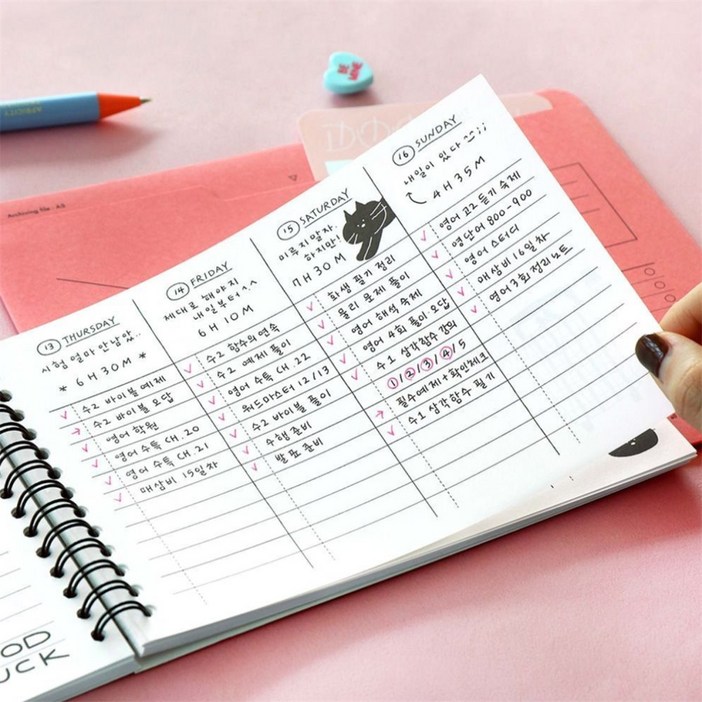 BE
MINE
Archiving file . A5
13 THURSDAY
시험 얼마 안남았..
* 6H 30M *
수2 바이블 예제
수2 바이블 오답
영어 학원
영어 수특 CH.20
영어 수특 CH.21
매삼비 15일차
14 FRIDAY
제대로 해야지
내일부터^^
6H 10M
수2 함수의 연속
수2 예제 풀이
영어 수특 CH.22
워드마스터 12/13
수2 바이블 풀이
수행 준비
발표 준비
15 SATURDAY
미루지 말자.
하지만!
7H 30M
화생 필기 정리
물리 문제 풀이
영어 해석 숙제
영어 4회 풀이.오답
수1 삼각함수 강의
①/②/③/④/5
필수예제+확인체크
수1 삼각함수 필기
16 SUNDAY
내일이 있다
4H 35M
영어 고2 듣기 숙제
영단어 800-900
영어 스터디
매삼비 16일차
영어 3회 정리노트
OD
UCK